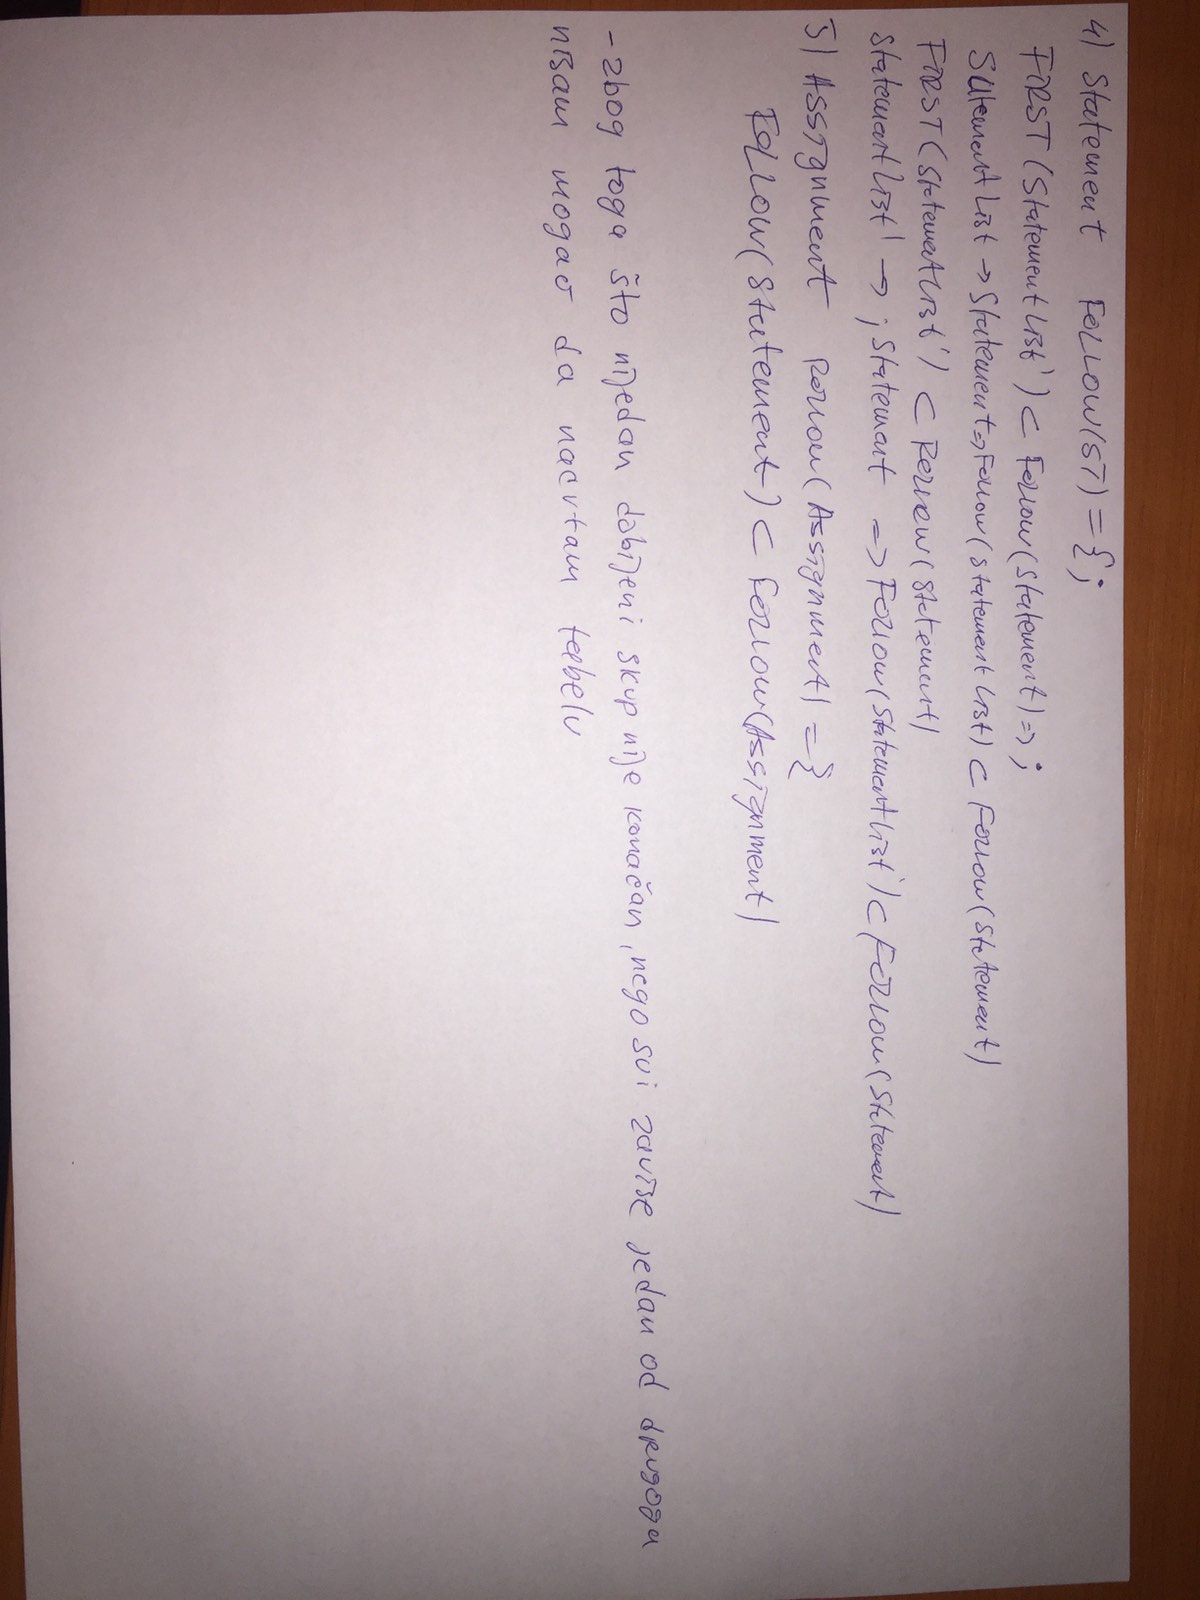 4) Statement FOLLOW(ST) = { ;
FIRST(Statement List') ⊂ Follow(Statement) => ;
Statement List → Statement => Follow(Statement List) ⊂ Follow(Statement)
FIRST(Statement List') ⊂ Follow(Statement)
Statement List' → ; Statement => Follow(Statement List') ⊂ Follow(Statement)
5) Assignment Follow(Assignment) = {
Follow(Statement) ⊂ Follow(Assignment)
- zbog toga što nijedan dobijeni skup nije konačan, nego svi zavise jedan od drugoga
nisam mogao da nacrtam tabelu